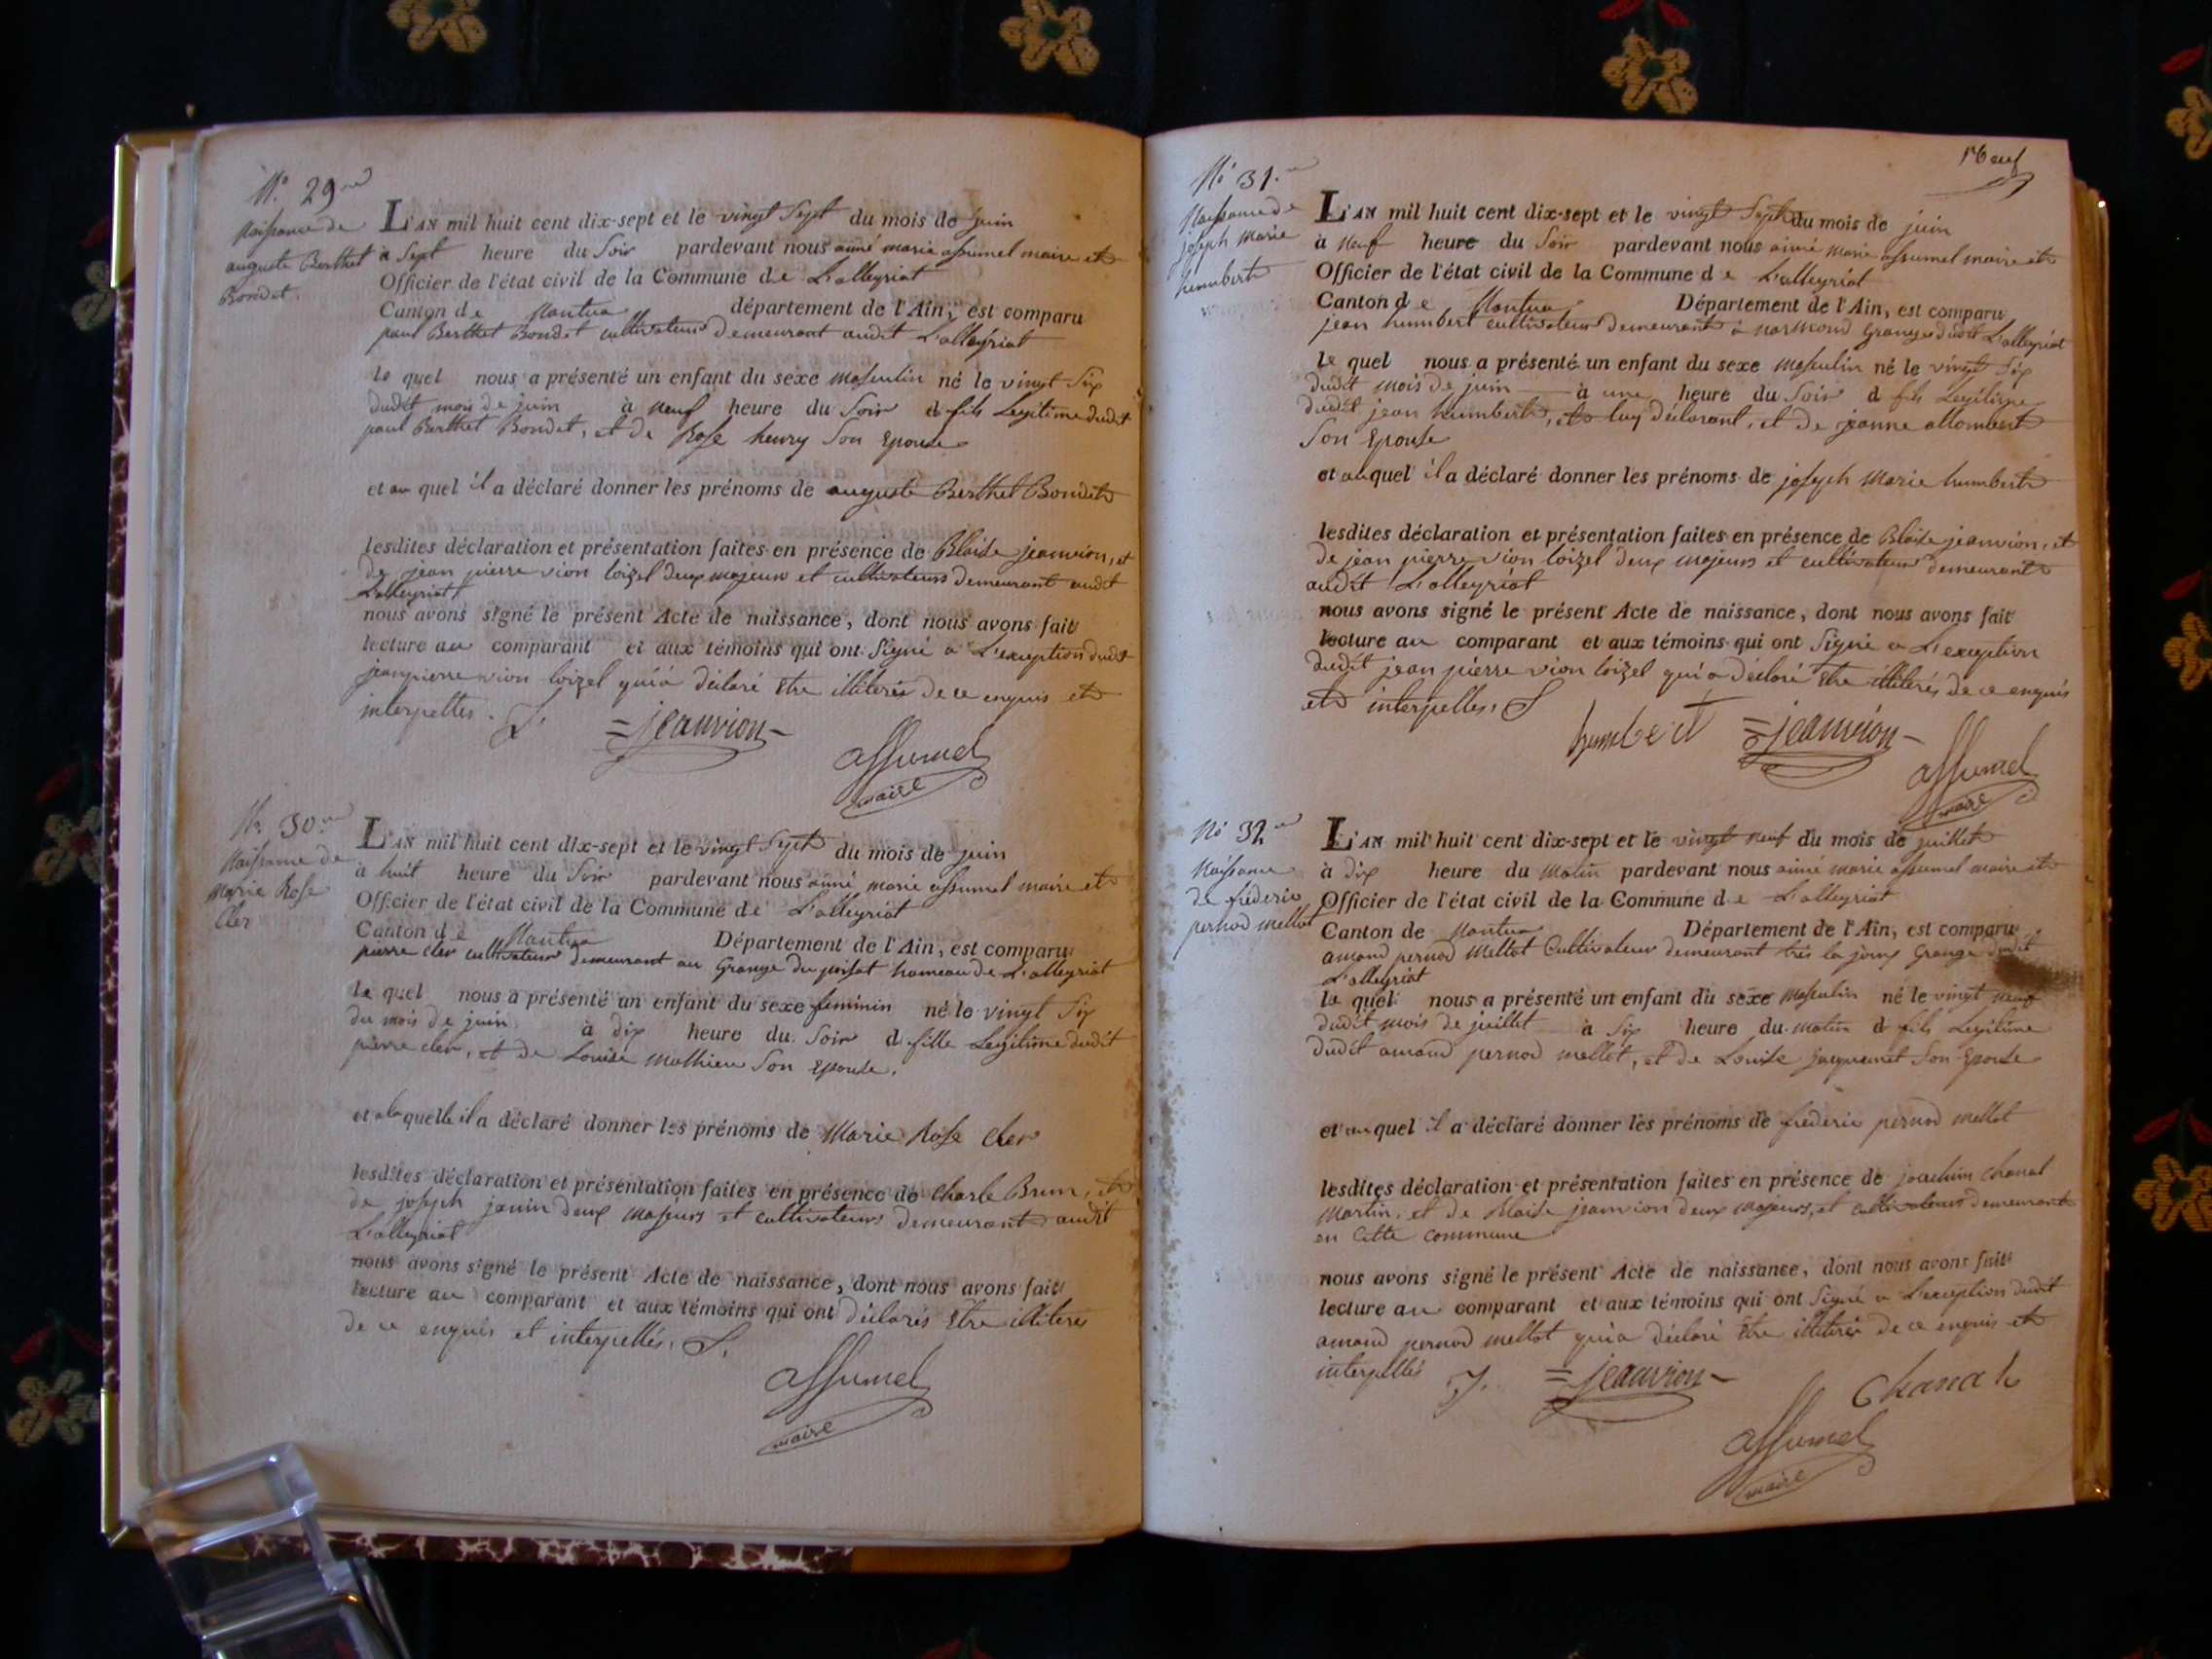 N.º 29
Naissance de
auguste Berthet
Bondet.
L'AN mil huit cent dix-sept et le vingt Sept du mois de juin
à Sept heure du Soir pardevant nous aimé marie assumel maire et
Officier de l'état civil de la Commune de L'alleyriat
Canton de Nantua département de l'Ain, est comparu
paul Berthet Bondet cultivateur demeurant audit L'alleyriat
le quel nous a présenté un enfant du sexe masculin né le vingt Six
dudit mois de juin à neuf heure du Soir d fils Legitime dudit
paul Berthet Bondet, et de Rose henry Son Epouse
et au quel il a déclaré donner les prénoms de auguste Berthet Bondet
lesdites déclaration et présentation faites en présence de Blaise jeanvion, et
de jean pierre vion loizel deux majeurs et cultivateurs demeurant audit
L'alleyriat
nous avons signé le présent Acte de naissance, dont nous avons fait
lecture au comparant et aux témoins qui ont Signé a L'exception dudit
jeanpierre vion loizel qui a déclaré Etre illiterés de ce enquis et
interpellés.
=jeanvion-
assumel
maire
N.º 30
Naissance de
Marie Rose
Cler
L'AN mil huit cent dix-sept et le vingt Sept du mois de juin
à huit heure du Soir pardevant nous aimé marie assumel maire et
Officier de l'état civil de la Commune de L'alleyriat
Canton de Nantua Département de l'Ain, est comparu
pierre cler cultivateur demeurant au Grange du poisat hameau de L'alleyriat
la quel nous a présenté un enfant du sexe feminin né le vingt Six
du mois de juin à dix heure du Soir d fille Legitime dudit
pierre cler, et de Louise Mathieu Son Epouse.
et a laquelle il a déclaré donner les prénoms de Marie Rose Cler
lesdites déclaration et présentation faites en présence de Charle Brun, et
de joseph janin deux Majeurs et cultivateurs demeurant audit
L'alleyriat
nous avons signé le présent Acte de naissance, dont nous avons fait
lecture au comparant et aux témoins qui ont déclarés Etre illiteres
de ce enquis et interpellés.
assumel
maire
Nº 31.
Naissance de
joseph Marie
humbert
L'AN mil huit cent dix-sept et le vingt Sept du mois de juin
à Neuf heure du Soir pardevant nous aimé Marie assumel maire et
Officier de l'état civil de la Commune de L'alleyriat
Canton de Nantua Département de l'Ain, est comparu
jean humbert cultivateur demeurant à Granges dudit L'alleyriat
le quel nous a présenté un enfant du sexe masculin né le vingt Six
dudit mois de juin à une heure du Soir d fils Legitime
dudit jean humbert, et luy déclarant, et de jeanne allombert
Son Epouse
et auquel il a déclaré donner les prénoms de joseph Marie humbert
lesdites déclaration et présentation faites en présence de Blaise jeanvion, et
de jean pierre vion loizel deux majeurs et cultivateurs demeurant
audit L'alleyriat
nous avons signé le présent Acte de naissance, dont nous avons fait
lecture au comparant et aux témoins qui ont Signé a L'exception
dudit jean pierre vion loizel qui a déclaré Etre illiterés de ce enquis
et interpellés,
humbert =jeanvion-
assumel
maire
Nº 32
Naissance
de frederic
pernod mellot
L'AN mil huit cent dix-sept et le vingt neuf du mois de juillet
à dix heure du Matin pardevant nous aimé marie assumel maire et
Officier de l'état civil de la Commune de L'alleyriat
Canton de Nantua Département de l'Ain, est comparu
amand pernod Mellot Cultivateur demeurant Grange dudit
L'alleyriat
le quel nous a présenté un enfant du sexe Masculin né le vingt neuf
dudit mois de juillet à Six heure du matin d fils Legitime
dudit amand pernod mellot, et de Louise jacquemet Son Epouse
et au quel il a déclaré donner les prénoms de frederic pernod mellot
lesdites déclaration et présentation faites en présence de joachim Chanal
Martin, et de Blaise jeanvion deux Majeurs, et cultivateurs demeurant
en Cette Commune
nous avons signé le présent Acte de naissance, dont nous avons fait
lecture au comparant et aux témoins qui ont Signé a L'exception dudit
amand pernod mellot qui a déclaré Etre illiterés de ce enquis et
interpellés
=jeanvion- Chanal
assumel
maire